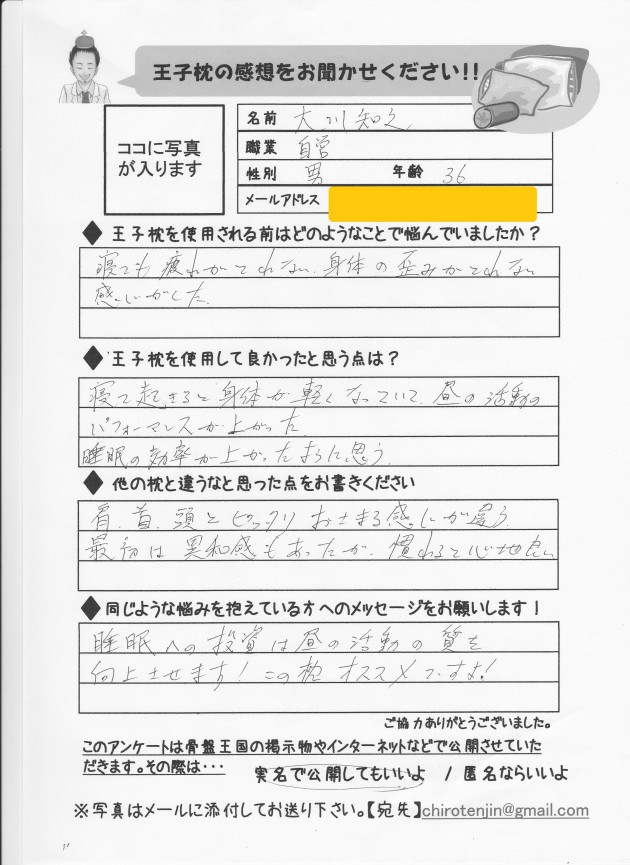 王子枕の感想をお聞かせください!!
ココに写真
が入ります
名前 大川知之
職業 自営
性別 男 年齢 36
メールアドレス
◆王子枕を使用される前はどのようなことで悩んでいましたか?
寝ても疲れがとれない、身体の歪みがとれない
感じがした。
◆王子枕を使用して良かったと思う点は?
寝て起きると身体が軽くなっていて、昼の活動の
パフォーマンスが上がった
睡眠の効率が上がったように思う。
◆他の枕と違うなと思った点をお書きください
肩、首、頭とピッタリおさまる感じが違う。
最初は異和感もあったが、慣れると心地良い
◆同じような悩みを抱えている方へのメッセージをお願いします!
睡眠への投資は昼の活動の質を
向上させます!この枕オススメですよ!
ご協力ありがとうございました。
このアンケートは骨盤王国の掲示物やインターネットなどで公開させていた
だきます。その際は・・・ 実名で公開してもいいよ / 匿名ならいいよ
※写真はメールに添付してお送り下さい。【宛先】chirotenjin@gmail.com